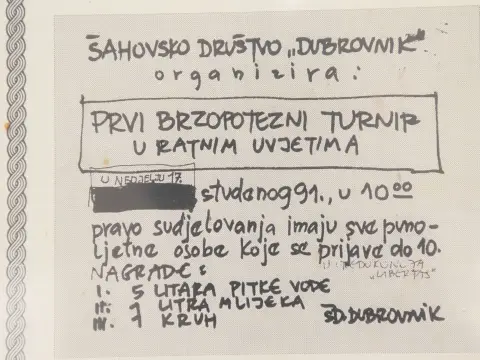 ŠAHOVSKO DRUŠTVO „DUBROVNIK"
organizira:
PRVI BRZOPOTEZNI TURNIR
U RATNIM UVJETIMA
U NEDJELJU 17.
studenog 91., u 10 00
pravo sudjelovanja imaju sve puno-
ljetne osobe koje se prijave do 10.
NAGRADE:
I. 5 LITARA PITKE VODE
II. 1 LITRA MLIJEKA
III. 1 KRUH
ŠD. DUBROVNIK